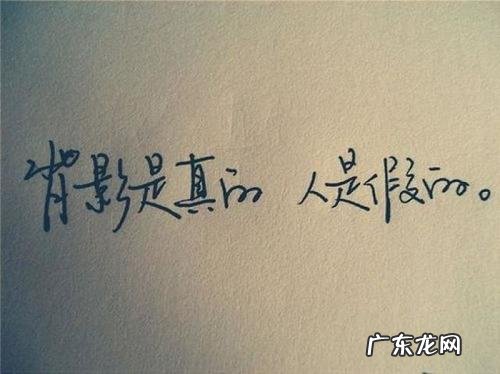 背影是真的 人是假的。
广东龙网